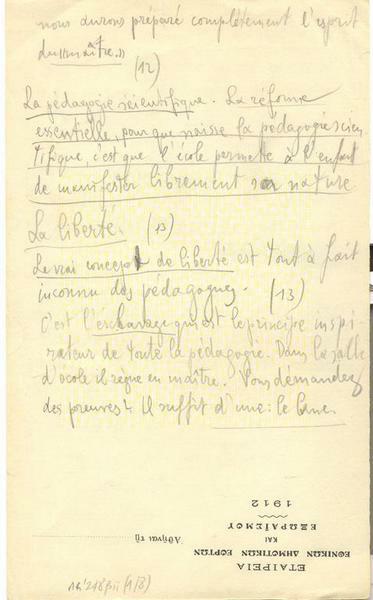 nous aurons préparé complètement l'esprit
du "maître."
(12)
La pédagogie scientifique. La réforme
essentielle, pour que naisse la pédagogie scien
tifique, c'est que l'école permette à l'enfant
de manifester librement sa nature
La liberté. (13)
Le vrai concept de liberté est tout à fait
inconnu des pédagogues. (13)
C'est l'esclavage qui est le principe inspi
rateur de toute la pédagogie. Dans la salle
d'école il règne en maître. Vous demandez
des preuves? Il suffit d'une: le banc.
ΕΤΑΙΡΕΙΑ
ΕΘΝΙΚΩΝ ΔΗΜΟΤΙΚΩΝ ΕΟΡΤΩΝ
ΚΑΙ
ΕΞΩΡΑΪΣΜΟΥ
1912
Ἀθῆναι τῇ